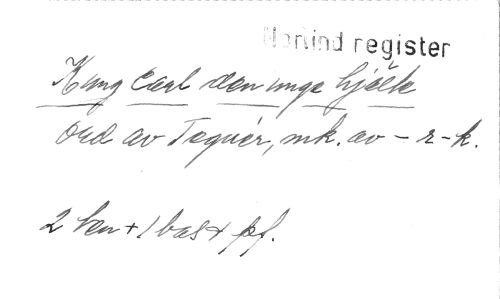 Norlind register
Kung Carl den unge hjälte
Ord av Tegnér, mk. av - r - k.
2 ten + 1 bas + pf.